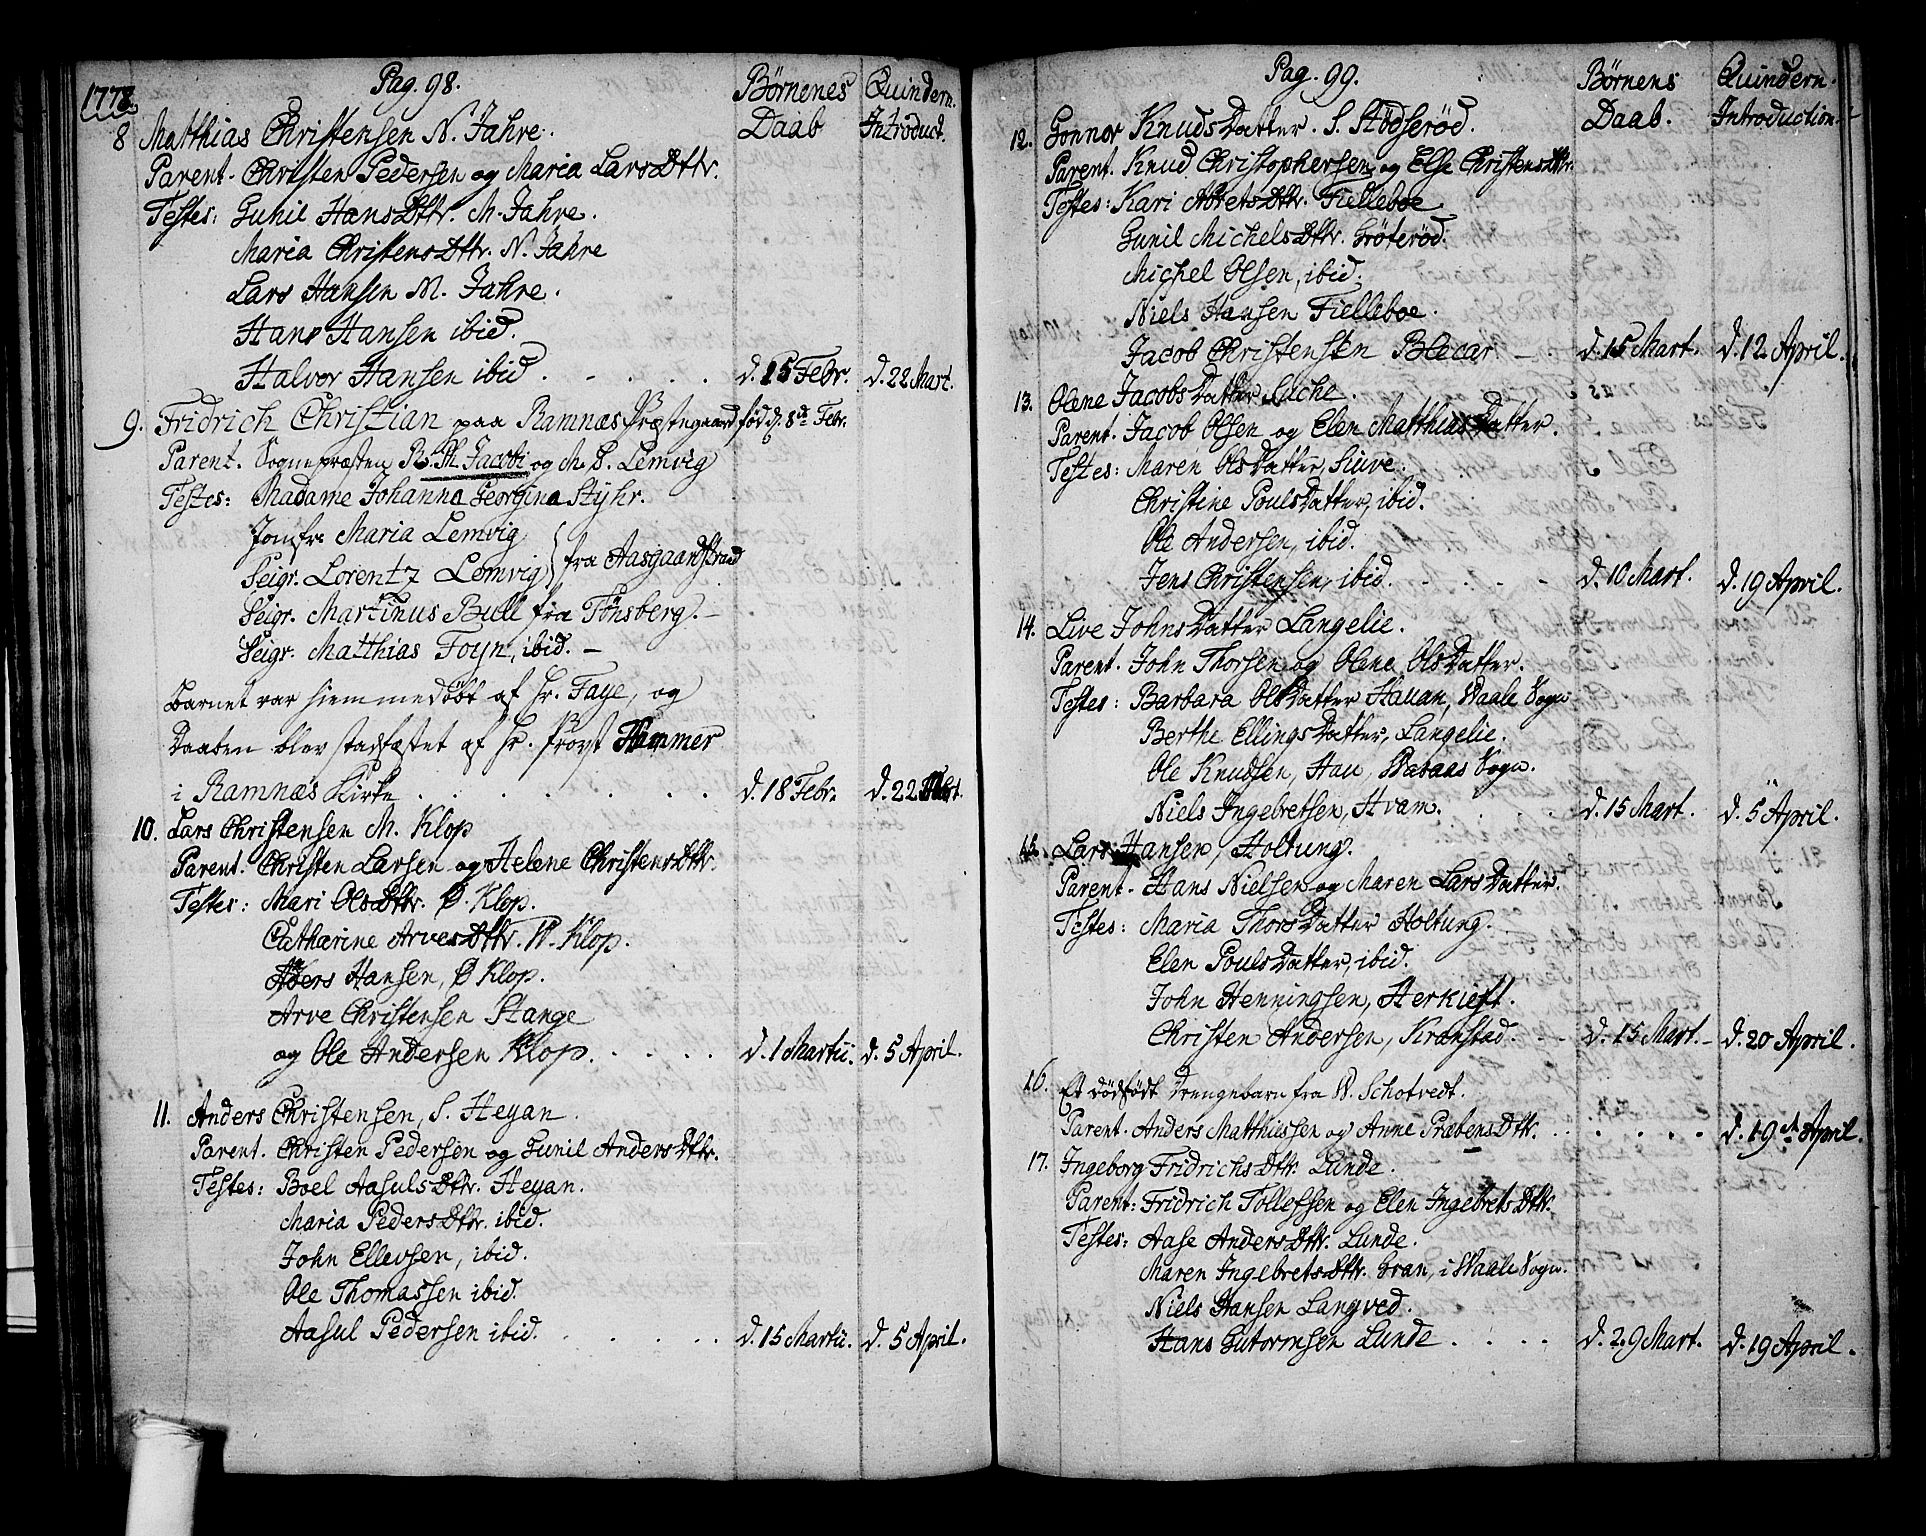 1778.
Pag. 98.
Börnenes Daab
Quindern. Introduct.
8 Matthias Christensen N. Jahre.
Parent. Christen Pedersen og Maria LarsDttr.
Testes: Gunil HansDttr. M. Jahre.
Maria ChristensDttr. N. Jahre
Lars Hansen M. Jahre.
Hans Hansen ibid.
Halvor Hansen ibid . . . . . d. 15 Febr. d. 22 Mart.
9. Fridrich Christian paa Ramnæs Præstegaard fød d. 8de Febr.
Parent. Sognepræsten Jacobi og M. S. Lemvig
Testes: Madame Johanna Georgina Styhr.
Jomfr. Maria Lemvig
Seigr. Lorentz Lemvig } fra Aasgaardstrand
Seigr. Martinus Bull fra Tönsberg. -
Seigr. Matthias Foyn, ibid. -
Barnet var hiemmedöbt af Hr. Faye, og
Daaben blev stadfæstet af Hr. Provst Hammer
i Ramnæs Kirke . . . . . . . d. 18 Febr. d. 22 Mart.
10. Lars Christensen M. Klop
Parent. Christen Larsen og Helene ChristensDttr.
Testes: Mari OlsDttr. Ø. Klop.
Catharine ArvesDttr. W. Klop.
Hansen, Ø Klop.
Arve Christensen Stange
og Ole Andersen Klop. . . . . d. 1 Martii. d. 5 April.
11. Anders Christensen, S. Heyan.
Parent. Christen Pedersen og Gunil AndersDttr.
Testes: Boel AasulsDttr. Heyan.
Maria PedersDttr. ibid.
John Ellevsen, ibid.
Ole Thomassen ibid.
Aasul Pedersen ibid. . . . . d. 15 Martii. d. 5 April.
Pag. 99.
Börnens Daab.
Quindern. Introduction.
12. Gonnor KnudsDatter. S. Stödseröd.
Parent. Knud Christophersen og Else ChristensDttr.
Testes: Kari Dttr. Fielleboe
Gunil MichelsDttr. Gröteröd.
Michel Olsen, ibid.
Niels Hansen Fielleboe.
Jacob Christensen - . d. 15 Mart. d. 12 April.
13. Olene JacobsDatter Liche.
Parent. Jacob Olsen og Elen MatthiasDatter.
Testes: Maren OlsDatter, Siuve.
Christine PoulsDatter, ibid.
Ole Andersen, ibid.
Jens Christensen, ibid. . . . - d. 10 Mart. d. 19 April.
14. Live JohnsDatter Langelie.
Parent. John Thorsen og Olene OlsDatter.
Testes: Barbara OlsDatter Hauan, Waale Sogn
Berthe EllingsDatter, Langelie.
Ole Knudsen, Hau, Sogn.
Niels Ingebretsen, Hvam. . . . d. 15 Mart. d. 5 April.
15. Lars Hansen, Holtung.
Parent. Hans Nielsen og Maren LarsDatter.
Testes: Maria ThorsDatter Holtung.
Elen PoulsDatter, ibid.
John Henningsen, Herkiest.
Christen Andersen, Kranstad. - - d. 15 Mart. - d. 20 April.
16. Et dödfödt Drengebarn fra W. Schotvedt.
Parent. Anders Matthiassen og Anne PræbensDttr. . . . . . d. 19de April.
17. Ingeborg FridrichsDttr. Lunde.
Parent: Fridrich Tollefssen og Elen IngebretsDttr.
Testes: Aase AndersDttr. Lunde.
Maren IngebretsDttr. Gran, i Waale Sogn.
Niels Hansen Langved.
Hans Gutormsen Lunde . . . . d. 29 Mart. d. 19 April.